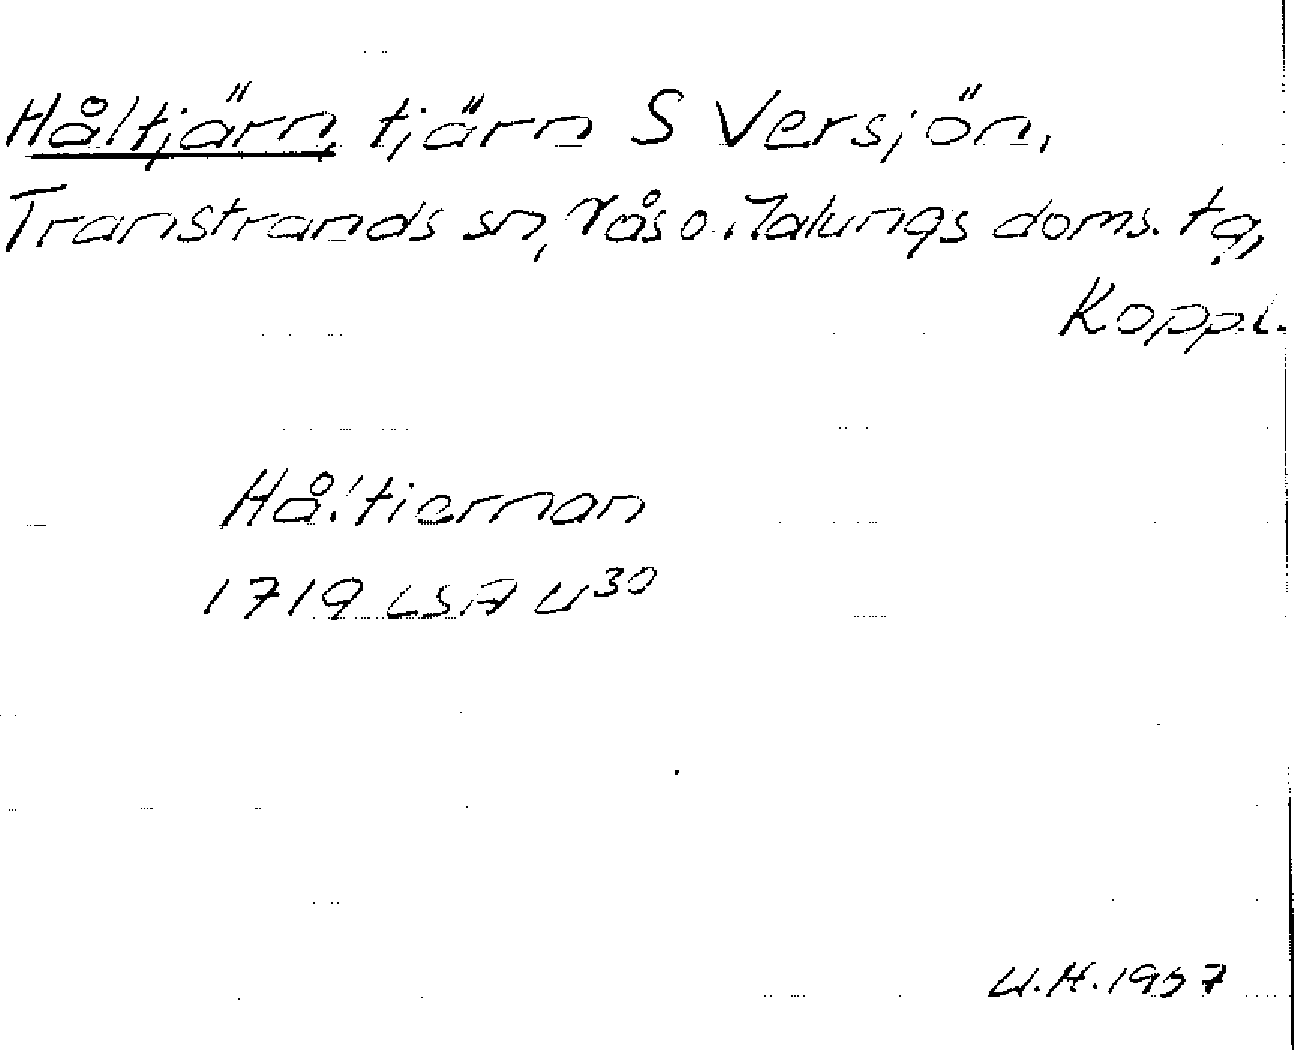 Håltjärn, tjärn S Versjön,
Transtrands sn, Nås o. Malungs doms. tg,
Kopp.l.
Hå!tiernan
1719 LSA U30
U.H. 1957